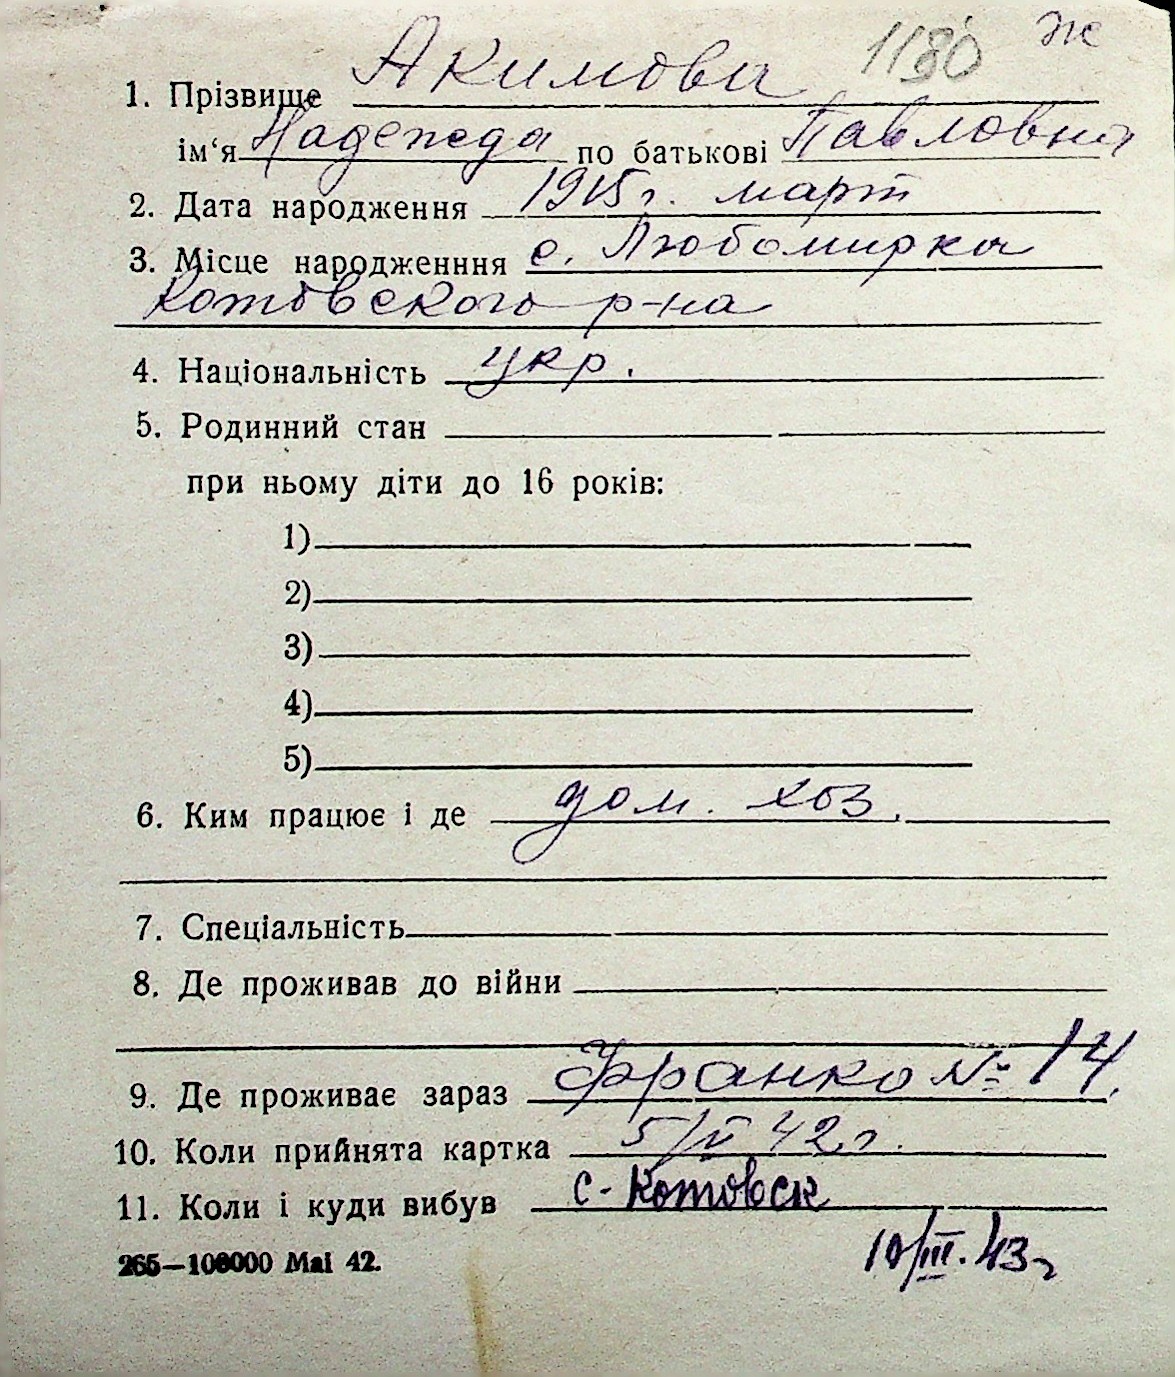 1180 Ж
1. Прізвище Акимова
ім‘я Надежда по батькові Павловна
2. Дата народження 1915 г. март
3. Місце народженння с. Любомирка
Котовского р-на
4. Національність укр.
5. Родинний стан
при ньому діти до 16 років:
1)
2)
3)
4)
5)
6. Ким працює і де дом. хоз.
7. Спеціальність
8. Де проживав до війни
9. Де проживає зараз Франко № 14.
10. Коли прийнята картка 5/V 42 г.
11. Коли і куди вибув с. Котовск
265—100000 Mai 42. 10/III. 43 г